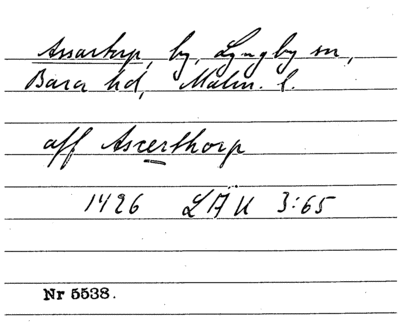 Assartorp, by, Lyngby sn,
Bara hd, Malm. l.
aff Ascerthorp
1426 LÄU 3:65
Nr 5538.